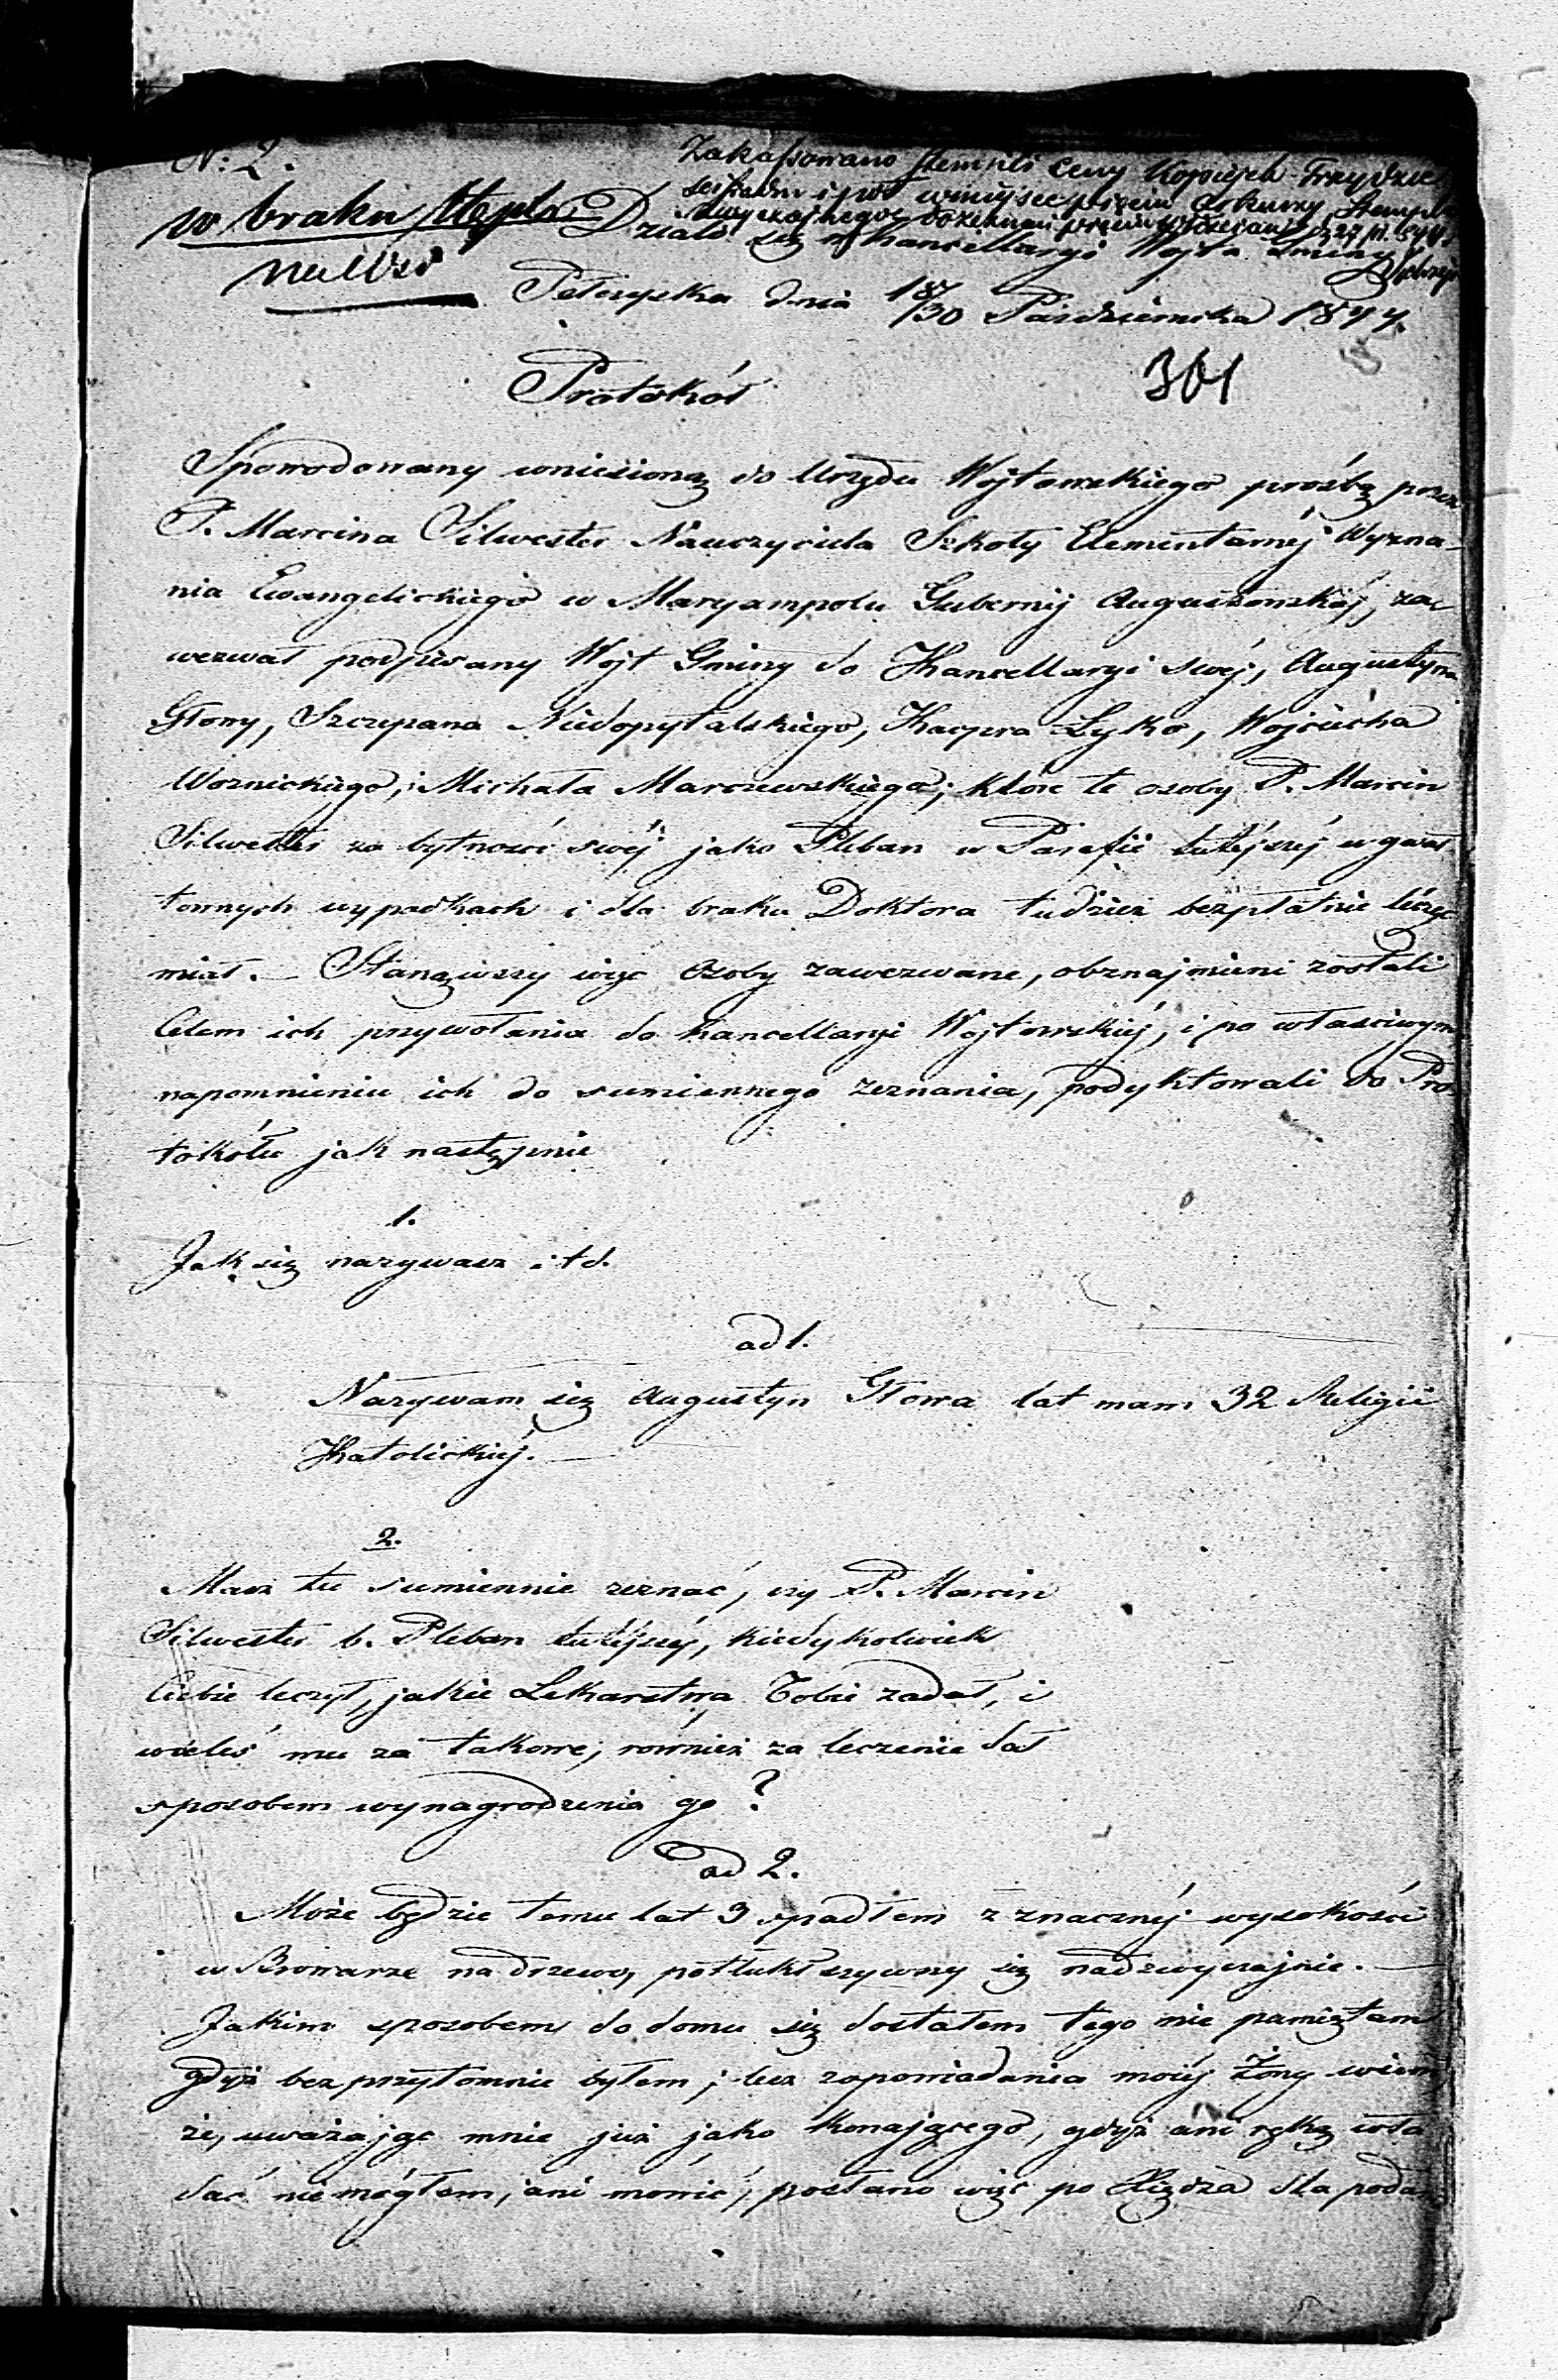 N: 2.
Zakassowano stempli ceny Kopiejek Trzydzie
w braku Stępla
Działo się w Kancellaryi Wójta Gminy
dnia 18/30 Pazdziernika 1844.
301
Protokół
Spowodowany wniesioną do Urzędu Wójtowskiego prośbą przez
P. Marcina Silwester Nauczyciela Szkoły Elementarnéj Wyzna-
nia Ewangelickiego w Maryampolu Gubernij Augustowskiéj, za-
wezwał podpisany Wójt Gminy do Kancellaryi swéj, Augustyna
Głowy, Szczepana Niedopytalskiego, Kacpra Łysko, Wojciecha
Woznickiego, i Michała Marczewskiego; które te osoby P. Marcin
Silwester za bytności swéj jako Pleban w Parafii tutéjszéj w gwał
townych wypadkach i dla braku Doktora tudzież bezpłatnie léczyc
miał. — Stanąwszy więc Osoby zawezwane, obznajmieni zostali
Celem ich przywołania do Kancellaryi Wójtowskiéj, i po właściwym
napomnieniu ich do sumiennego zeznania, podyktowali do Pro
tokółu jak następnie
1.
Jak się nazywasz itd.
ad 1.
Nazywam się Augustyn Głowa lat mam 32 Religii
Katolickiéj. —
2.
Masz tu sumiennie zeznać, czy P. Marcin
Silwester b. Pleban tutéjszy, kiedykolwiek
Ciebie leczył, jakie Lekarstwa Tobie zadał, i
wieleś mu za takowe, również za leczenie dał
sposobem wynagrodzenia go?
ad 2.
Może będzie temu lat 3 spadłem z znacznéj wysokości
w Browarze na drzewo, potłukłszywszy się nadzwyczajnie. —
Jakim sposobem do domu się dostałem tego nie pamiętam
gdyż bezprzytomnie byłem; lecz z opowiadania moiéj Żony wiem
że, uważając mnie już jako konającego, gdyż ani ręką wła
dać nie mógłem, ani mowić, posłano więc po Xiędza dla podan